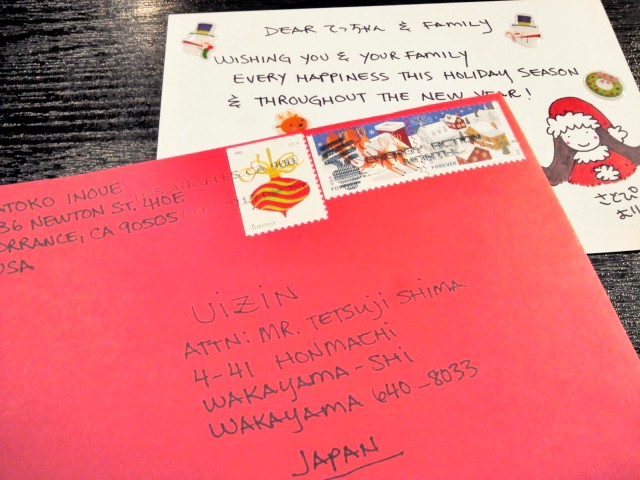 DEAR てっちゃん & FAMILY
WISHING YOU & YOUR FAMILY
EVERY HAPPINESS THIS HOLIDAY SEASON
& THROUGHOUT THE NEW YEAR!
さとぴ
より
ATOKO INOUE
36 NEWTON ST. 40E
ORRANCE, CA 90505
USA
LOS ANGELES CA 900
FOREVER
FOREVER
UiZiN
ATTN: MR. TETSUJI SHIMA
4-41 HONMACHI
WAKAYAMA-SHI
WAKAYAMA 640-8033
JAPAN